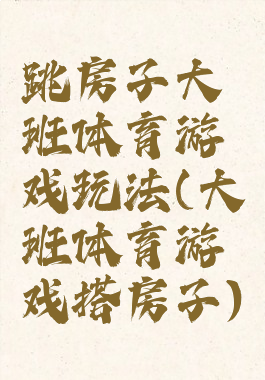 跳房子大
班体育游
戏玩法(大
班体育游
戏搭房子)